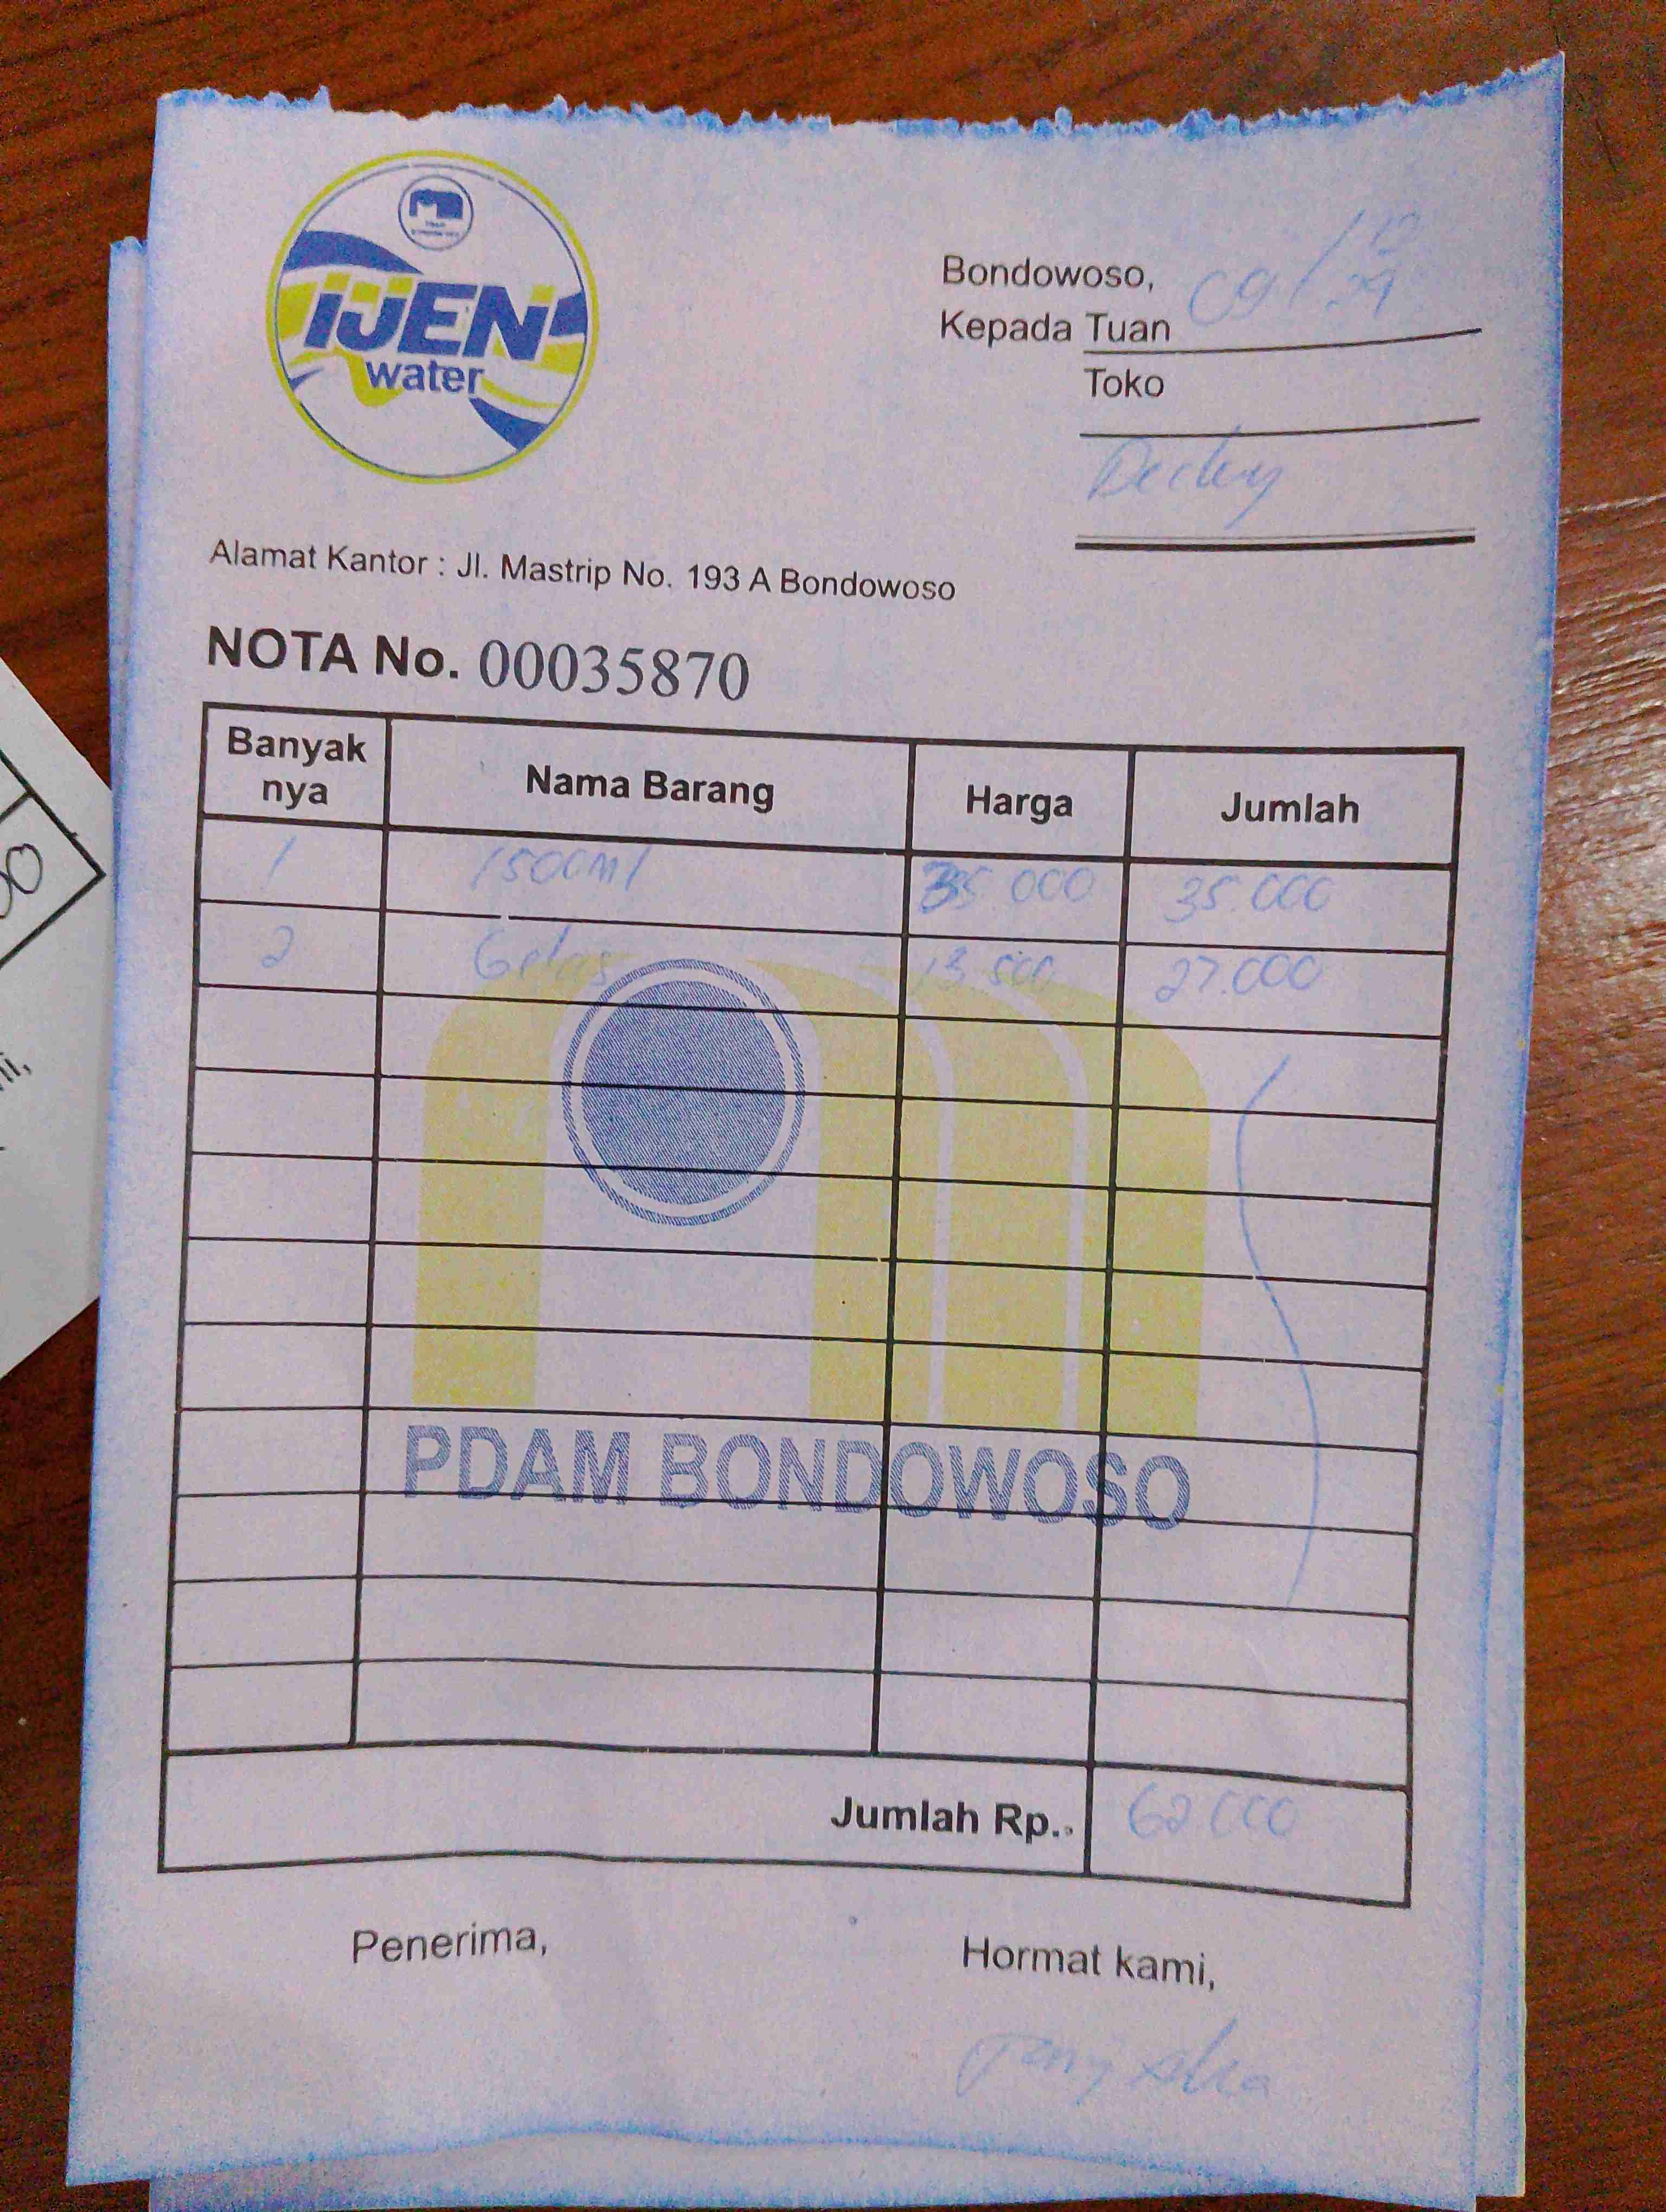 IJEN
water
Bondowoso, 09/12
Kepada Tuan
Toko
Alamat Kantor : Jl. Mastrip No. 193 A Bondowoso
NOTA No. 00035870
Banyak nya Nama Barang Harga Jumlah
1 1500Ml 35.000 35.000
2 Gelas 13.500 27.000
PDAM BONDOWOSO
Jumlah Rp. 62.000
Penerima, Hormat kami,